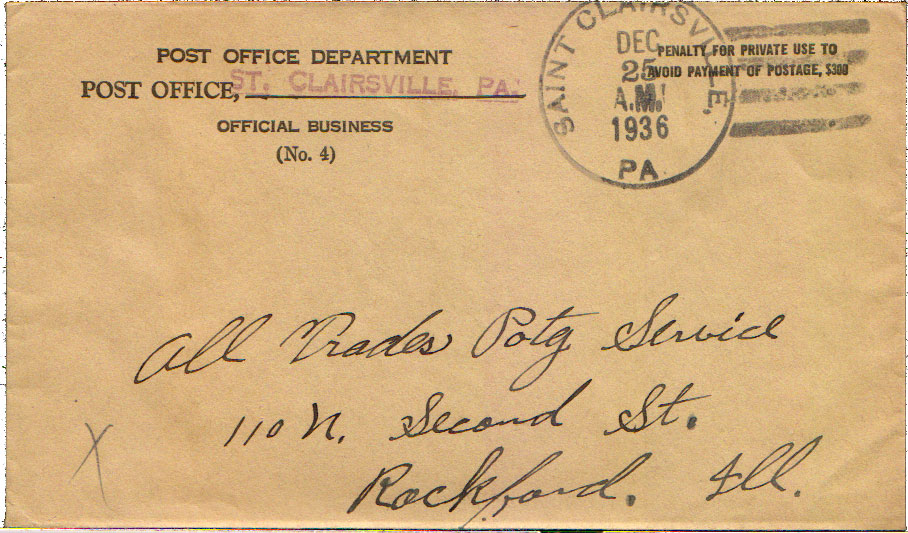 POST OFFICE DEPARTMENT
POST OFFICE, ST. CLAIRSVILLE, PA.
OFFICIAL BUSINESS
(No. 4)
SAINT CLAIRSVILLE,
DEC
25
A.M.
1936
PA
PENALTY FOR PRIVATE USE TO
AVOID PAYMENT OF POSTAGE, $300
All Trades Potg Service
110 N. Second St.
Rockford. Ill.
X